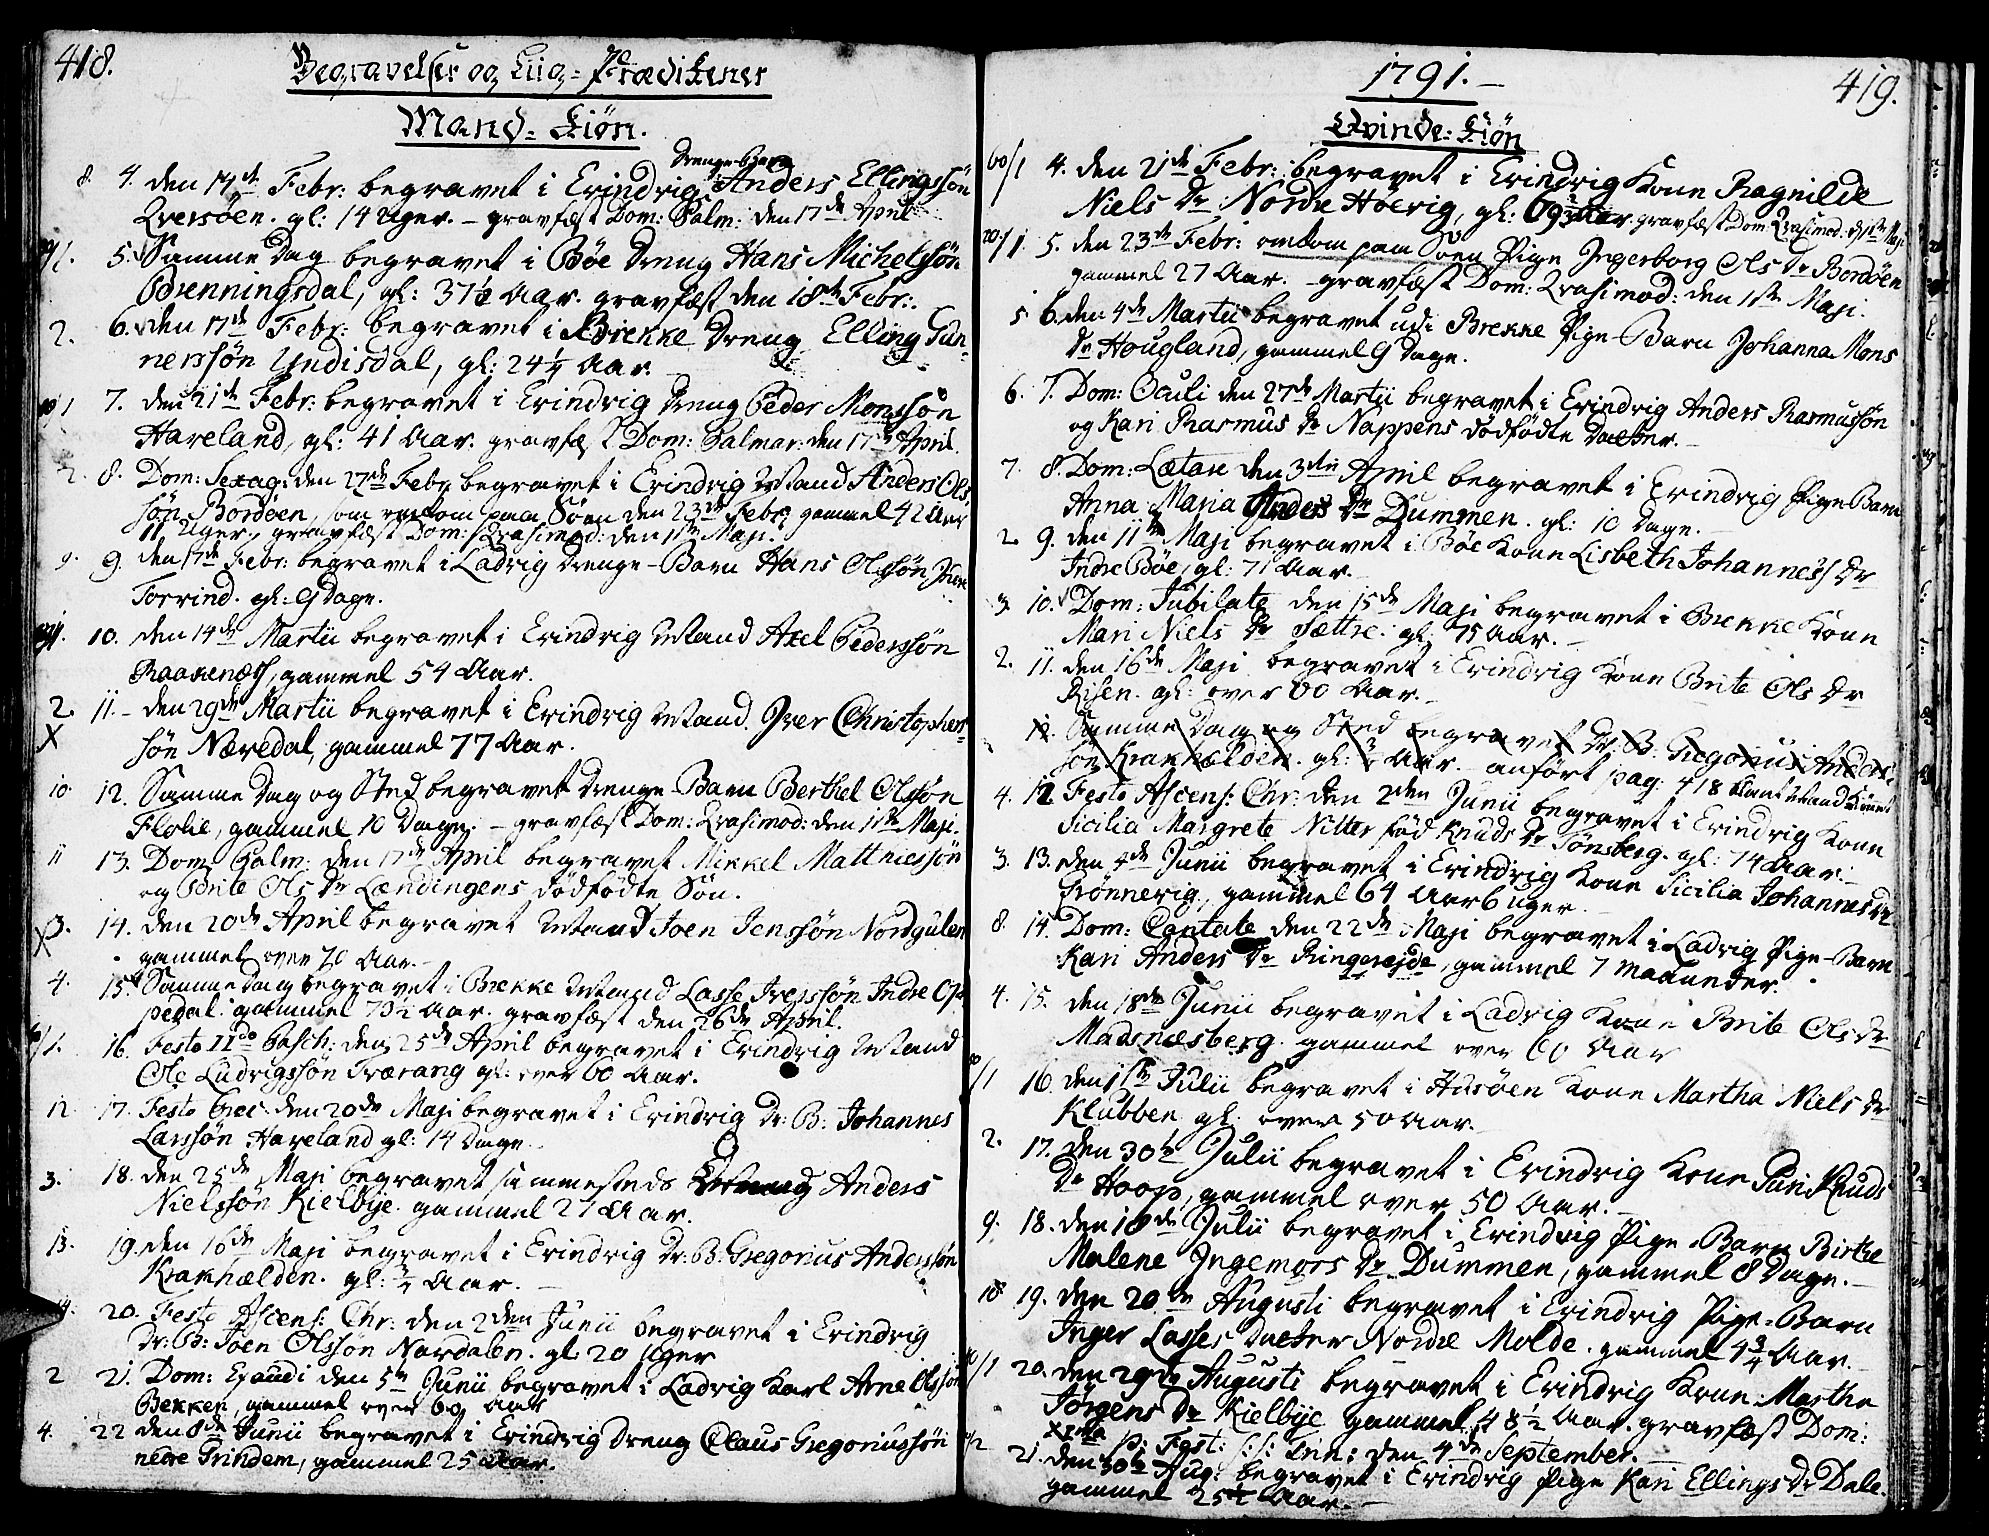 418.
Begravelser og Liig-Prædikener
Mand-Kiøn.
8. 4. den 14de Febr: begravet i Evindvig Drenge-Barn Anders Ellingssøn
Qversöen. gl: 14 Uger. - gravfæst Dom: Palm: den 17de April.
5. Samme Dag begravet i Böe Dreng Hans Michelssøn
Brenningsdal, gl: 37½ Aar. gravfæst den 18de Febr:.
2. 6. den 17de Febr: begravet i Brekke Dreng Elling Gun-
nerssøn Undisdal, gl: 24½ Aar.
10/1 7. den 21de Febr: begravet i Evindvig Dreng Peder Monssøn
Haveland, gl: 41 Aar. gravfæst Dom: Palmar: den 17de April.
2. 8. Dom: Sexag: den 27de Febr: begravet i Evindvig Mand Anders Ols
søn Bordöen, som omkom paa Söen den 23de Febr: gammel 42 Aar
11 Uger, gravfæst Dom: Qvasimod: den 1ste Maji.
9. 9. den 17de Febr: begravet i Ladvig Drenge-Barn Hans Olssøn Indre
Torvind. gl: 9 Dage.
10. den 14de Martii begravet i Evindvig Mand Axel Pederssøn
Raakenæss, gammel 54 Aar.
2. 11. - den 29de Martii begravet i Evindvig Mand Iver Christophers-
X søn Næredal, gammel 77 Aar.
10 12. Samme Dag og Sted begravet Drenge-Barn Berthel Olssøn
Flolie, gammel 10 Dage. - gravfæst Dom: Qvasimod: den 1ste Maji.
11 13. Dom: Palm: den 17de April begravet Mikkel Matthiessøn
og Brite Ols Dr Lændingens dödfödte Søn.
3. 14. den 20de April begravet Mand Joen Jenssøn Nordgulen
X gammel over 70 Aar.
4. 15. Samme Dag begravet i Brekke Mand Lasse Iverssøn Indre Op-
pedal. gammel 73½ Aar. gravfæst den 26de April.
16. Festo IIdo Pasch: den 25de April begravet i Evindvig Mand
Ole Ludvigssøn Tværang gl: over 60 Aar.
12 17. Festo Prec: den 20de Maji begravet i Evindvig Dr: B: Johannes
Larssøn Haveland gl: 14 Dage.
3. 18. den 25de Maji begravet sammesteds Anders
Nielssøn Kielbÿe. gammel 27 Aar.
13. 19. den 16de Maji begravet i Evindvig Dr: B: Gregorius Anderssøn
Krakhælden. gl: ¾ Aar.
14. 20. Festo Ascens: Chr: den 2den Junii begravet i Evindvig
Dr: B: Joen Olssøn Nardalen. gl: 20 Uger
2 21. Dom: Exaudi den 5te Junii begravet i Ladvig Karl Arne Olssøn
Bekken, gammel over 60 Aar
4. 22 den 8de Junii begravet i Evindvig Dreng Claus Gregoriussøn
nedre Grindem, gammel 25 Aar.
1791. -
419.
Qvinde-Kiøn
60/1 4. den 21de Febr: begravet i Evindvig Kone Ragnilde
Niels Dr Nordre Høevig, gl: 69¾ Aar. gravfæst Dom: Qvasimod: d. 1ste Maji
20/1. 5. den 23de Febr: omkom paa Söen Pige Ingerborg Ols Dr Bordöen
gammel 27 Aar. - gravfæst Dom: Qvasimod: den 1ste Maji.
5 6. den 4de Martii begravet udi Brekke Pige-Barn Johanna Mons
Dr Hougland, gammel 9 Dage.
6. 7. Dom: Oculi den 27de Martii begravet i Evindvig Anders Rasmussøn
og Kari Rasmus Dr Nappens dödfödte Datter.
7. 8. Dom: Lætare den 3die April begravet i Evindvig Pige-Barn
Anna Maria Anders Dr Dummen. gl: 10 Dage.
2. 9. den 11te Maji begravet i Böe Kone Lisbeth Johanness Dr
Indre Böe, gl: 71 Aar.
3. 10. Dom: Jubilate den 15de Maji begravet i Brekke Kone
Mari Niels Dr Sættre. gl: 75 Aar.
2. 11. den 16de Maji begravet i Evindvig Kone Brite Ols Dr
Risen. gl: over 60 Aar.
12. Samme Dag og Sted begravet Dr: B: Gregorius Anders-
søn Krakhælden. gl: ¾ Aar. anført pag: 418 blant Mand Kiønet
4. 12 Festo Ascens: Chr: den 2den Junii begravet i Evindvig Kone
Sicilia Margrete Nitter föd Knuds Dr Tønsberg. gl: 74 Aar.
3. 13. den 4de Junii begravet i Evindvig Kone Sicilia Johannes Dr
Grönnevig, gammel 64 Aar 6 Uger.
8. 14. Dom: Cantate den 22de Maji begravet i Ladvig Pige-Barn
Kari Anders Dr Ringerejde, gammel 7 Maaneder.
4. 15. den 18de Junii begravet i Ladvig Kone Brite Ols Dr
Madsnæsberg. gammel over 60 Aar
16. den 1ste Julii begravet i Husöen Kone Martha Niels Dr
Klubben gl: over 50 Aar.
2. 17. den 30te Julii begravet i Evindvig Kone Guri Knuds
Dr Hoop, gammel over 50 Aar.
9. 18. den 18de Julii begravet i Evindvig Pige-Barn Birthe
Malene Ingemors Dr Dummen, gammel 8 Dage.
10 19. den 20de Augusti begravet i Evindvig Pige-Barn
Inger Lasses Datter Nordre Molde. gammel 4¾ Aar.
20. den 29de Augusti begravet i Evindvig Kone Martha
Jörgens Dr Kielbÿe gammel 48½ Aar. gravfæst Dom:
p: Fest: S: S: Trin: den 4de September.
21. den 30te Aug: begravet i Evindvig Pige Kari Ellings Dr Dale.
gammel 25½ Aar.